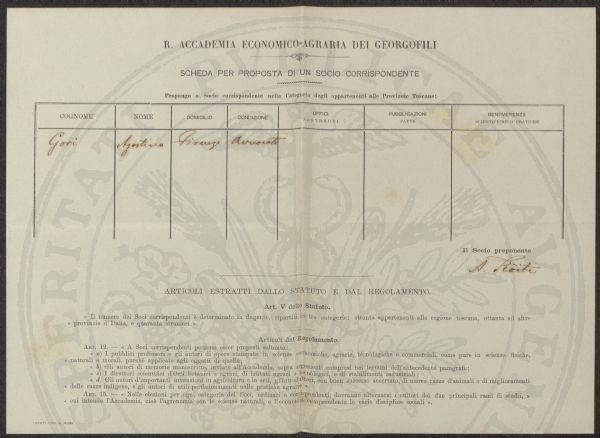 R. ACCADEMIA ECONOMICO-AGRARIA DEI GEORGOFILI
SCHEDA PER PROPOSTA DI UN SOCIO CORRISPONDENTE
Propongo a Socio corrispondente nella Categoria degli appartenenti alle Provincie Toscane:
COGNOME NOME DOMICILIO CONDIZIONE UFFICI SOSTENUTI PUBBLICAZIONI FATTE BENEMERENZE SCIENTIFICHE O PRATICHE
Gori Agostino Firenze Avvocato
Il Socio proponente
A.
ARTICOLI ESTRATTI DALLO STATUTO E DAL REGOLAMENTO.
Art. V dello Statuto.
« Il numero dei Soci corrispondenti è determinato in dugento, ripartiti in tre categorie: ottanta appartenenti alla regione toscana, ottanta ad altre
« provincie d'Italia, e quaranta stranieri ».
Articoli del Regolamento.
ART. 12. — « A Soci corrispondenti possono esser proposti soltanto:
« a) I pubblici professori e gli autori di opere stampate in scienze economiche, agrarie, tecnologiche e commerciali, come pure in scienze fisiche,
« naturali e morali, purchè applicate agli oggetti di quelle;
« b) Gli autori di memorie manoscritte, inviate all'Accademia, sopra argomenti compresi nei termini dell'antecedente paragrafo;
« c) I direttori scientifici d'Orti botanici e agrari, di istituti agrari e tecnologici, e di stabilimenti industriali;
« d) Gli autori d'importanti invenzioni in agricoltura e in arti, gl'introduttori, con buon successo accertato, di nuove razze d'animali o di miglioramenti
« delle razze indigene, e gli autori di utili perfezionamenti nelle pratiche agrarie ».
ART. 15. — « Nelle elezioni per ogni categoria dei Soci, ordinari e corrispondenti, dovranno alternarsi i cultori dei due principali rami di studii,
« cui intende l'Accademia, cioè l'agronomia con le scienze naturali, e l'economia comprendente le varie discipline sociali ».